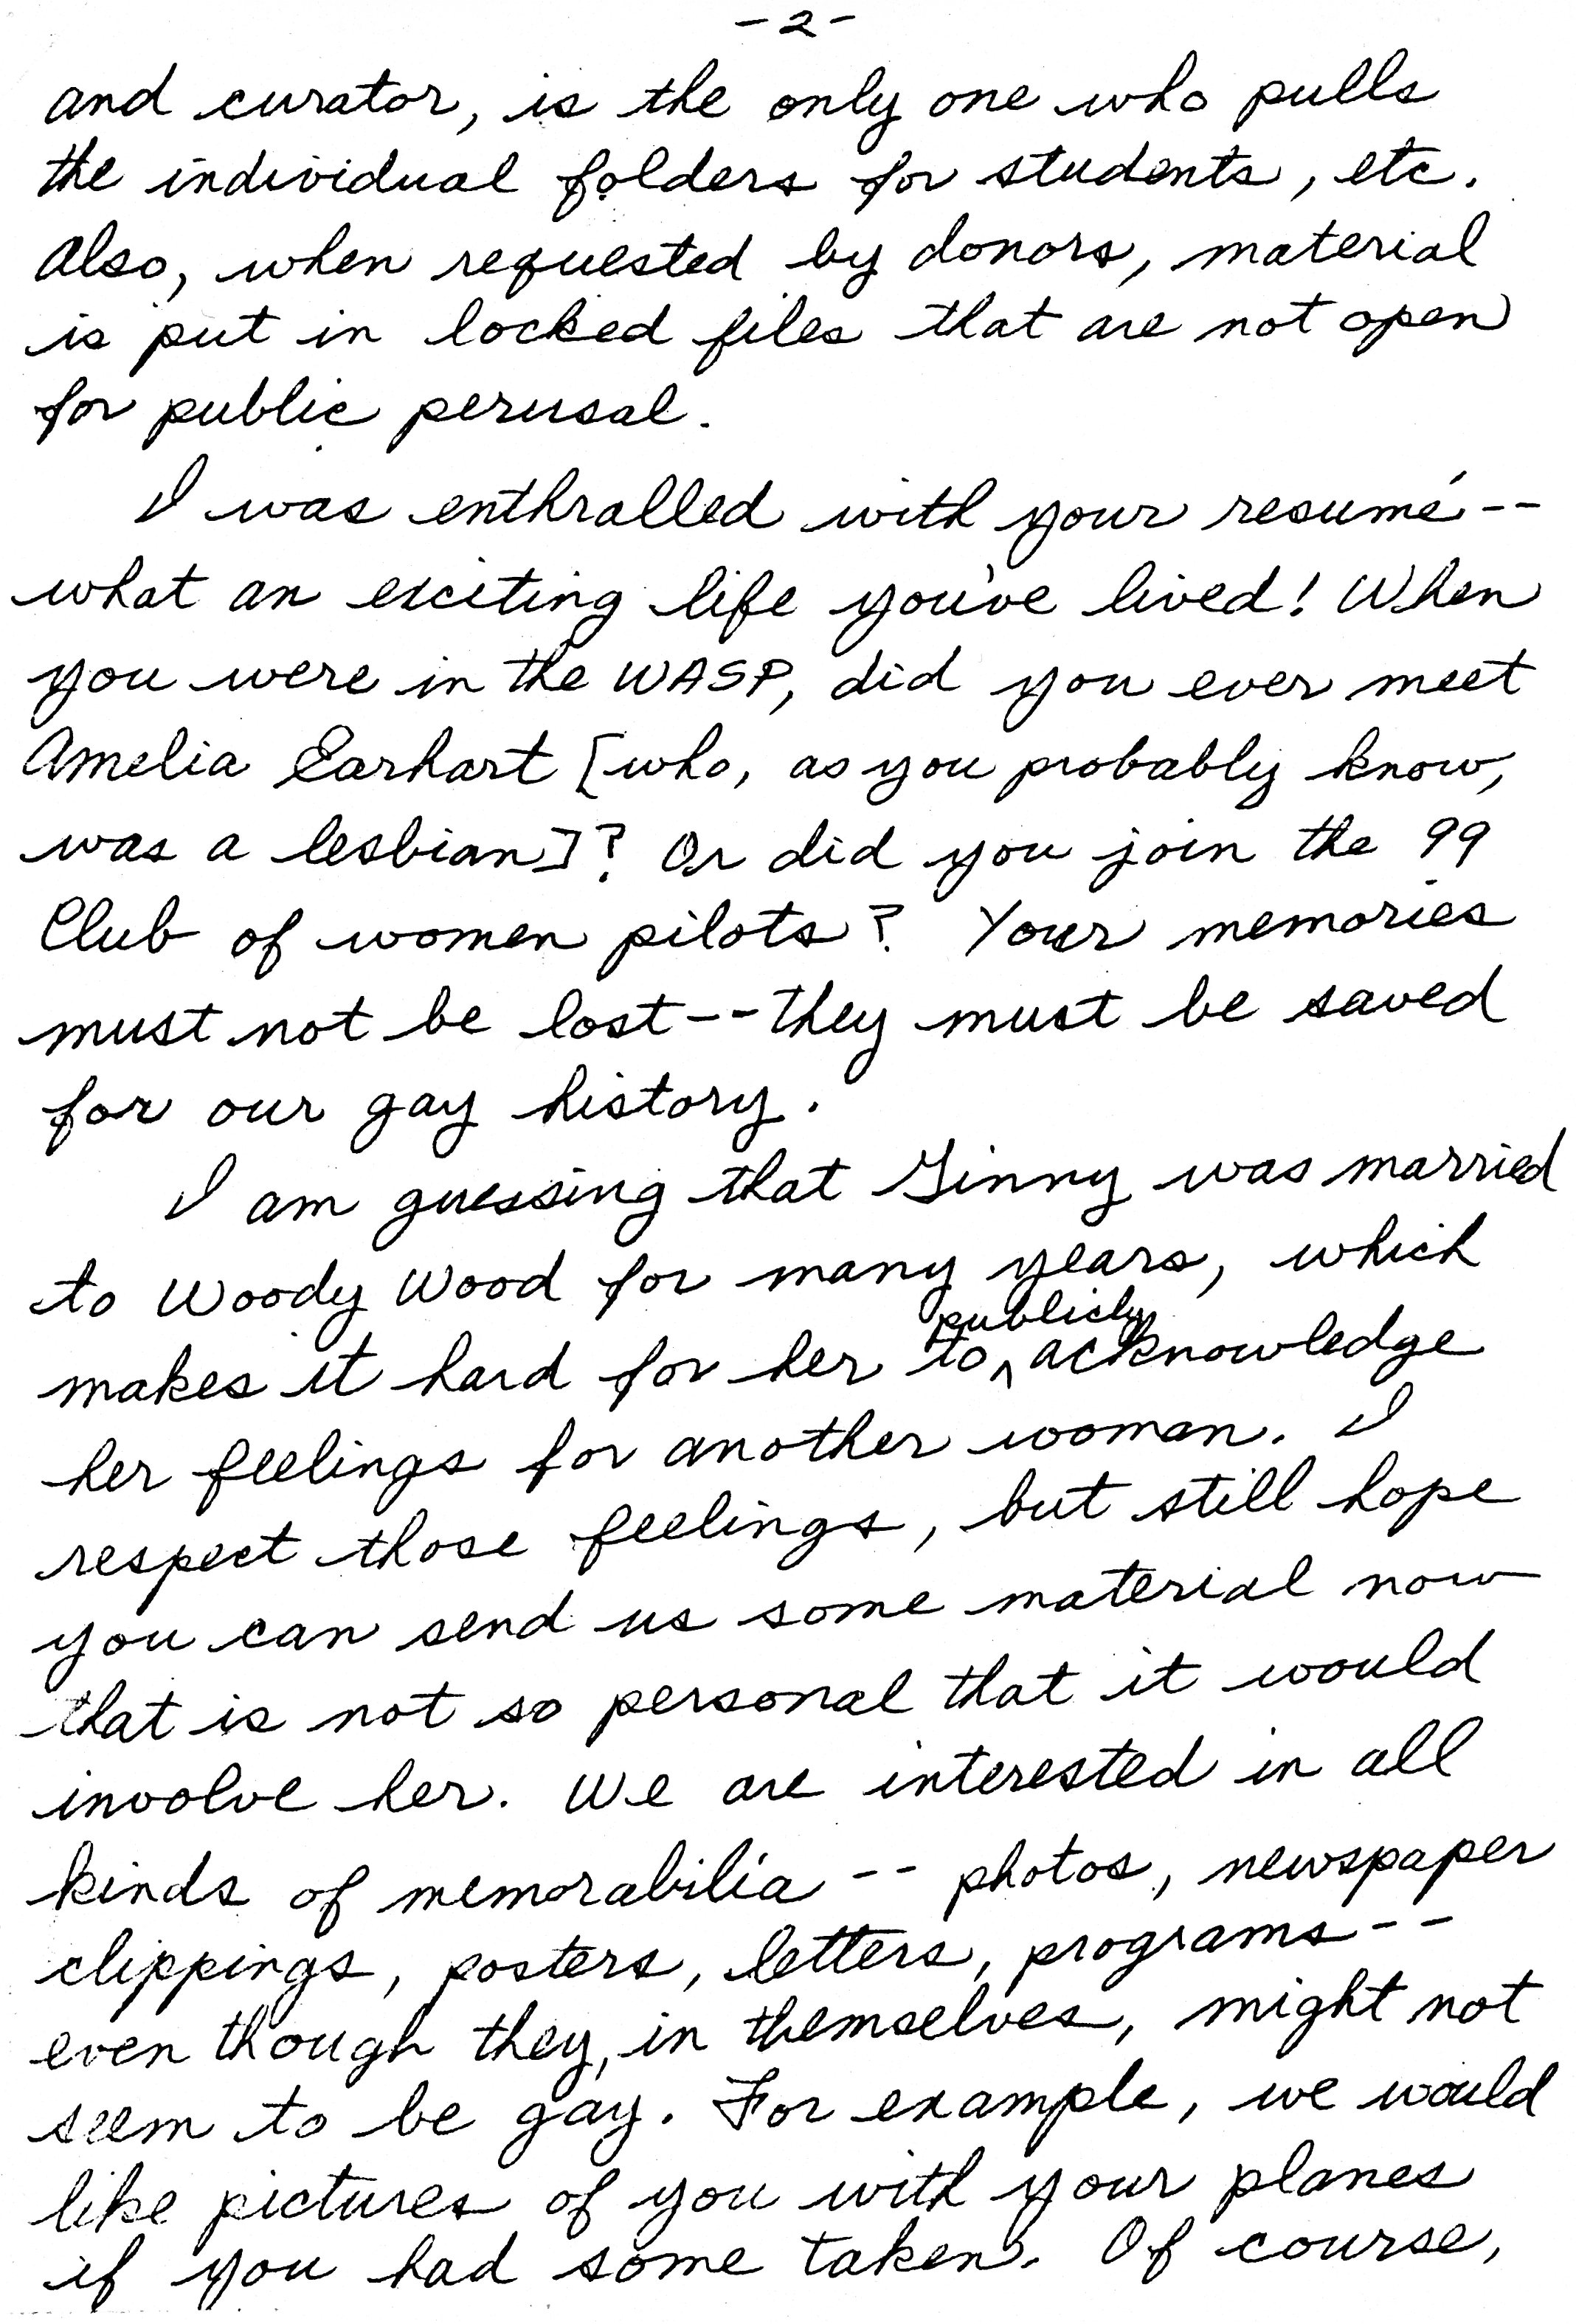 -2-
and curator, is the only one who pulls
the individual folders for students, etc.
Also, when requested by donors, material
is put in locked files that are not open
for public perusal.
I was enthralled with your resumé--
what an exciting life you've lived! When
you were in the WASP, did you ever meet
Amelia Earhart [who, as you probably know,
was a lesbian]? Or did you join the 99
Club of women pilots? Your memories
must not be lost--they must be saved
for our gay history.
I am guessing that Ginny was married
to Woody Wood for many years, which
makes it hard for her to ^publicly acknowledge
her feelings for another woman. I
respect those feelings, but still hope
you can send us some material now
that is not so personal that it would
involve her. We are interested in all
kinds of memorabilia -- photos, newspaper
clippings, posters, letters, programs--
even though they, in themselves, might not
seem to be gay. For example, we would
like pictures of you with your planes
if you had some taken. Of course,